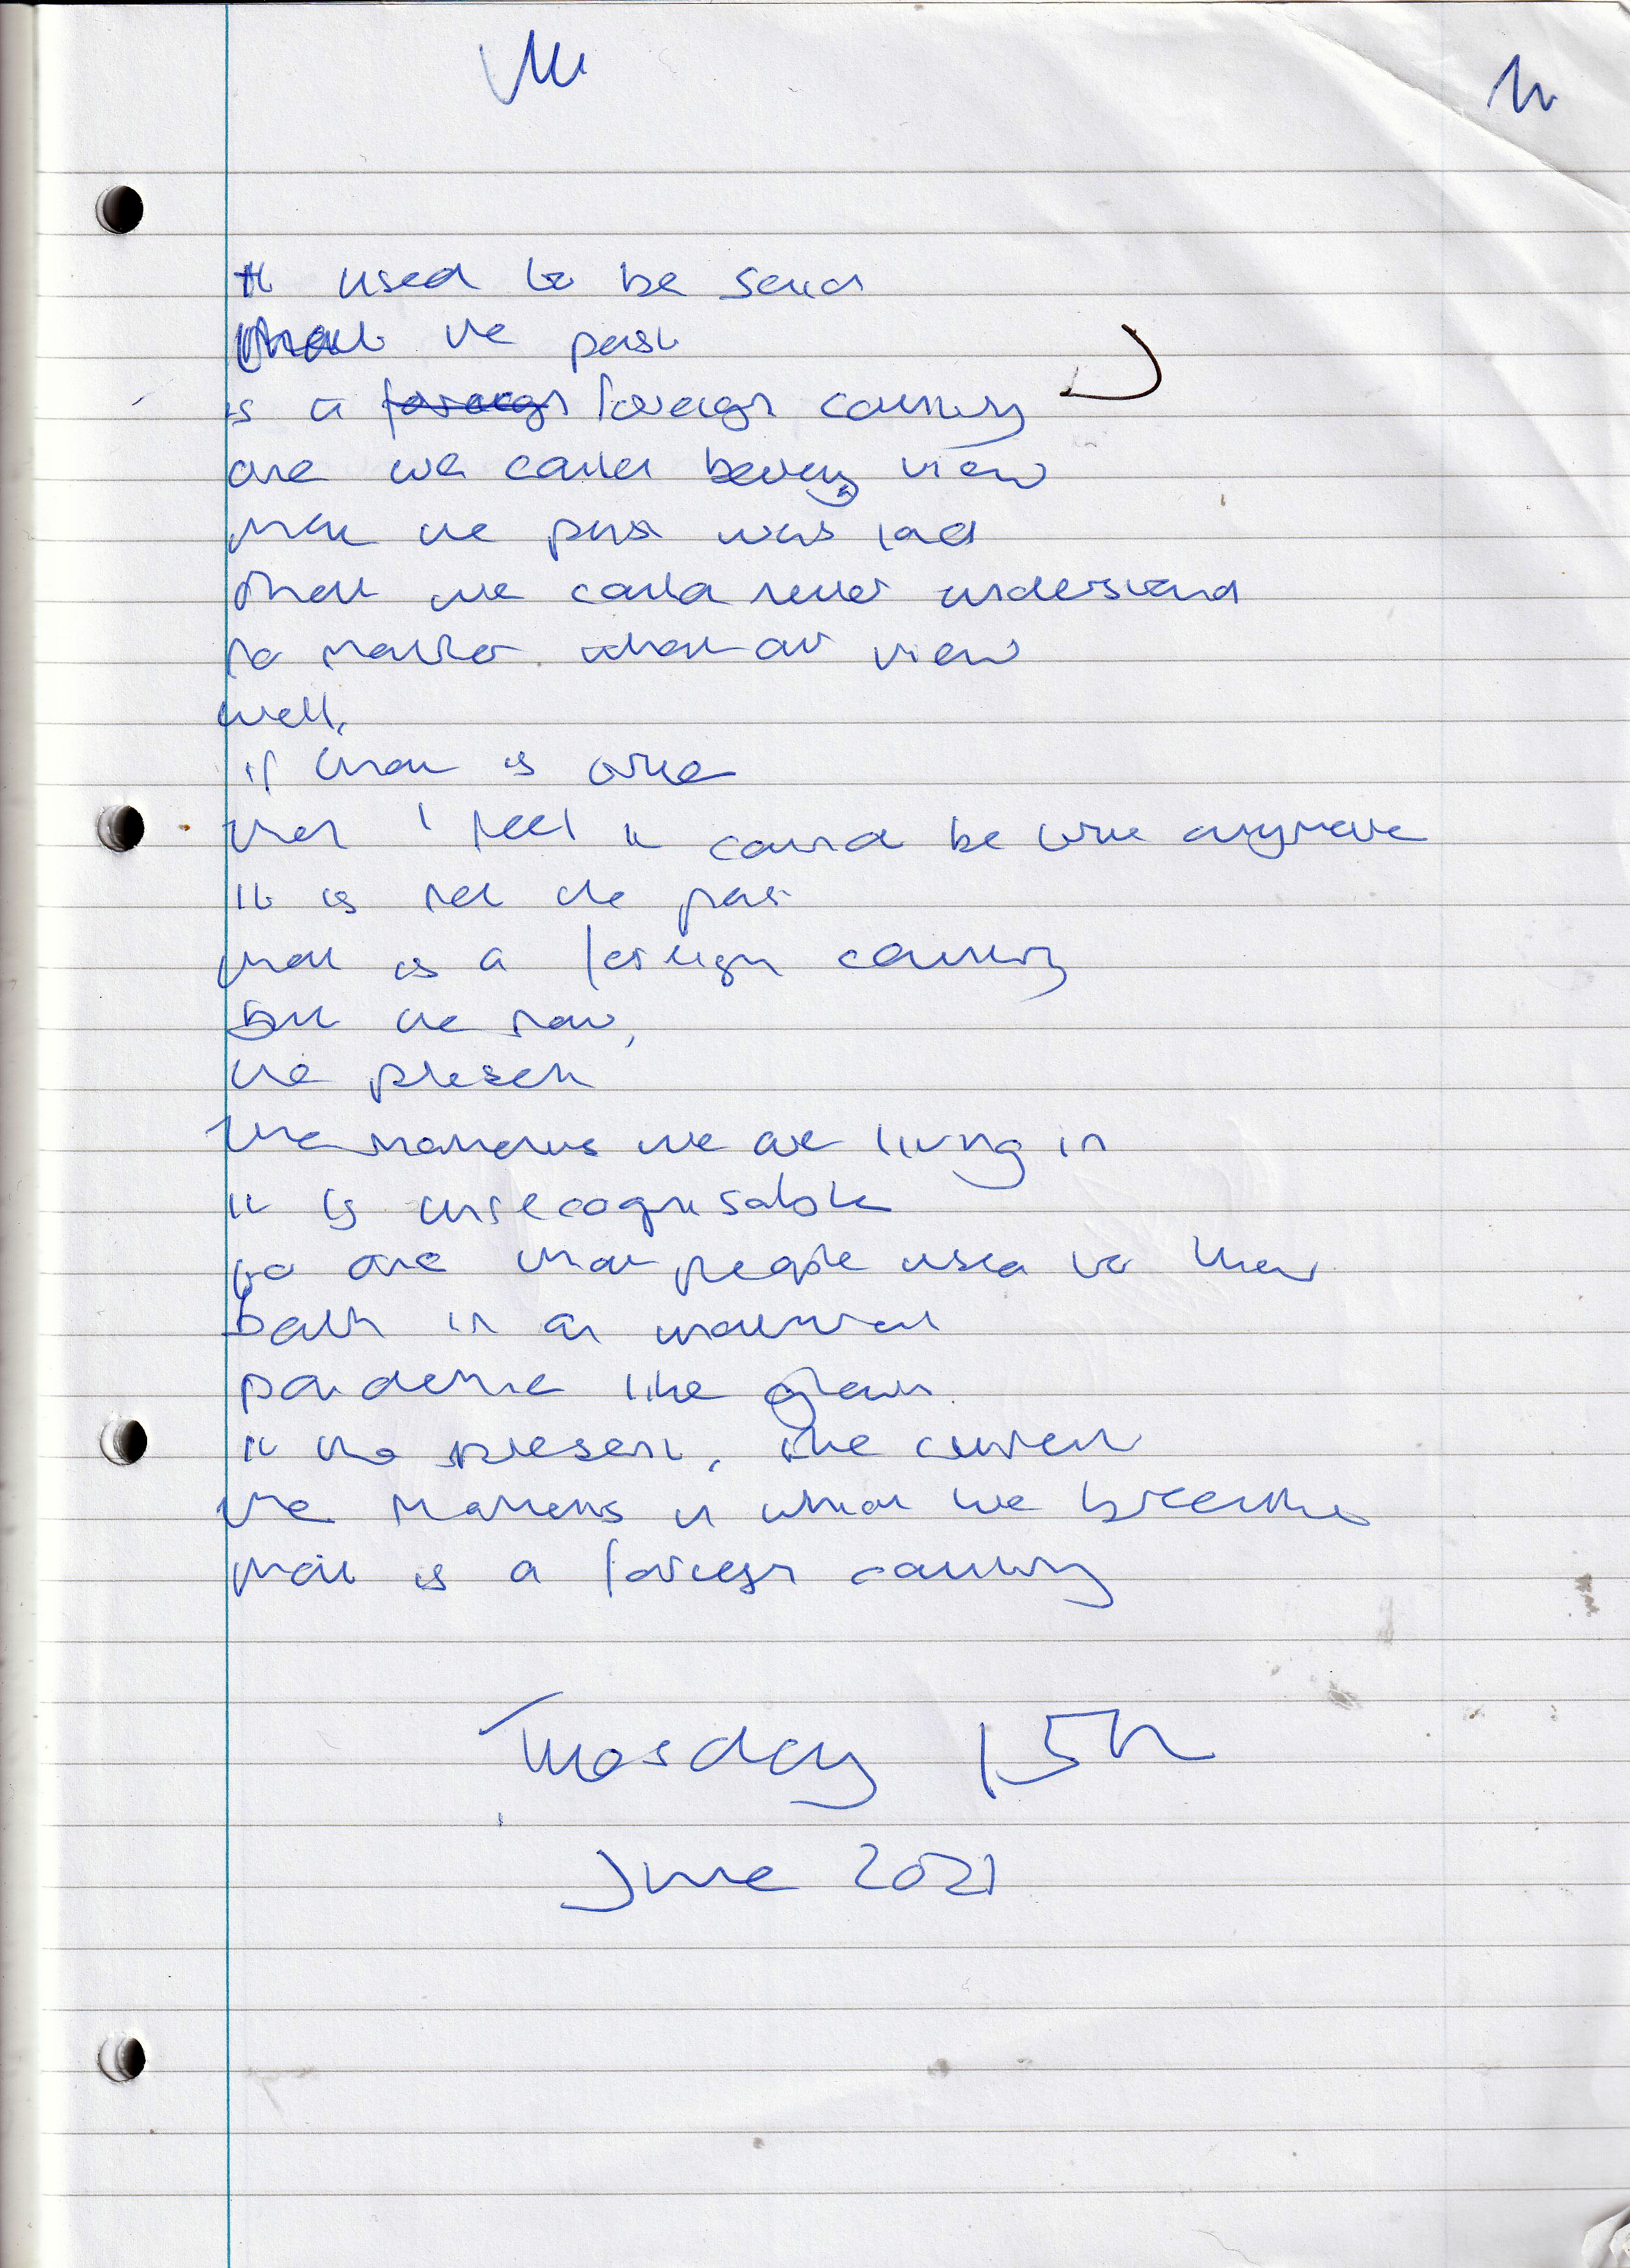 It used to be said
that the past
is a foreign foreign country
one we could barely view
that the past was
that we could never understand
no matter what our view
well,
if that is true
then I feel it cannot be true anymore
it is not the past
that is a foreign country
but the now,
the present
the moments we are living in
it is unrecognisable
to one that people used to know
both in an
pandemic like
it the present, the current
the moments in what we breathe
that is a foreign country
Tuesday 15th
June 2021